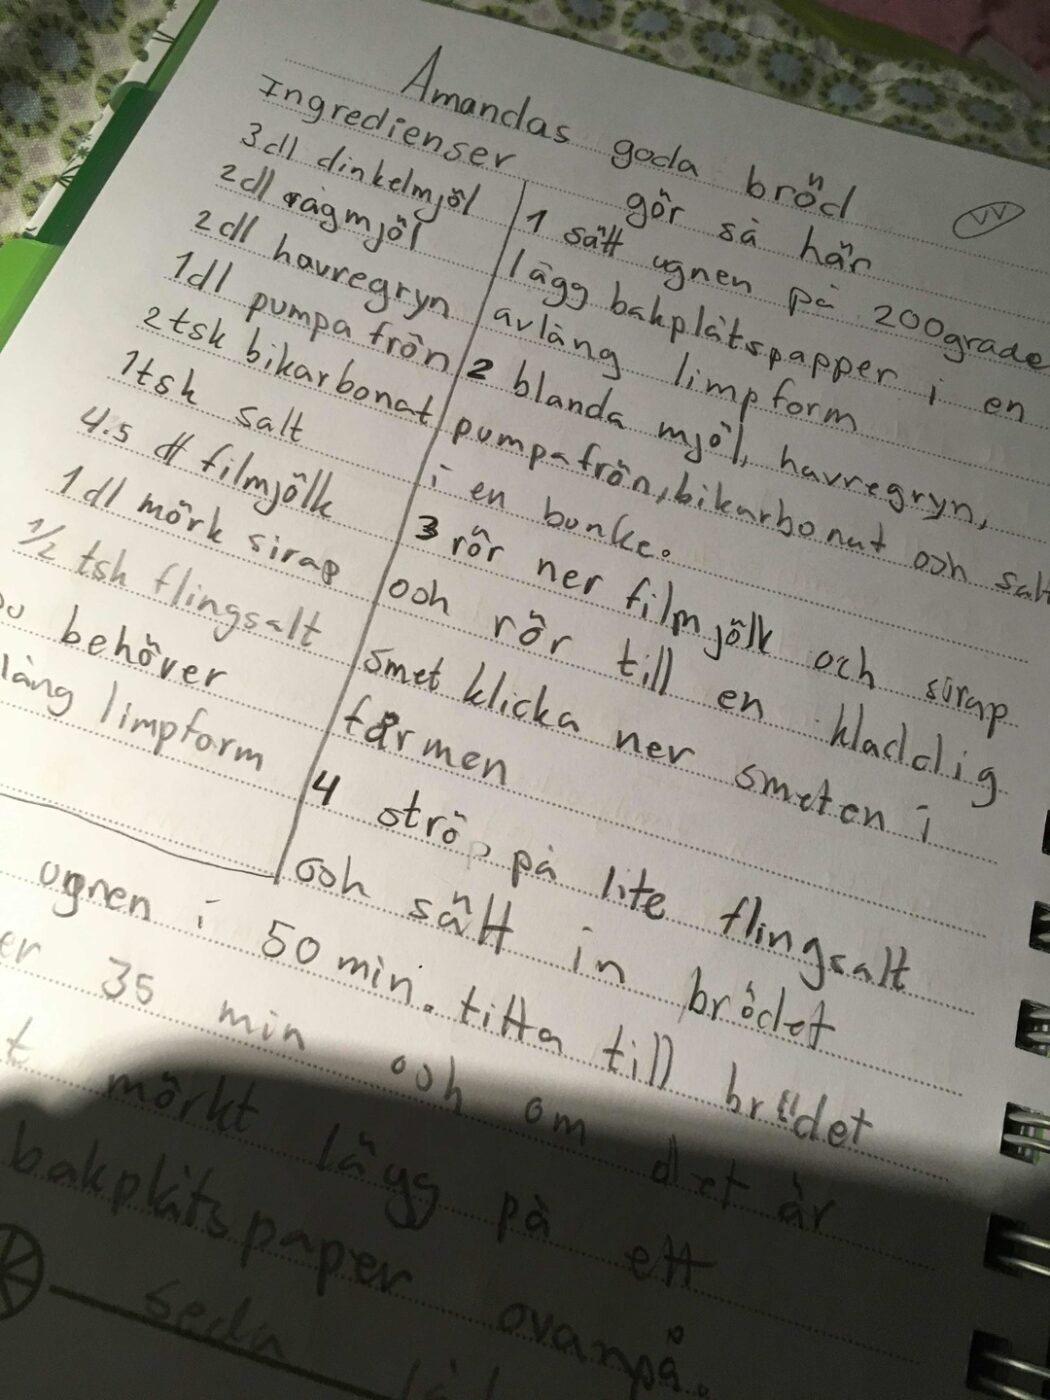 Amandas goda bröd
Ingredienser
3dl dinkelmjöl
2dl rågmjöl
2dl havregryn
1dl pumpafrön
2tsk bikarbonat
1tsk salt
4.5 dl filmjölk
1dl mörk sirap
1/2 tsk flingsalt
behöver
lång limpform
gör så här
1 sätt ugnen på 200grade
lägg bakplåtspapper i en
avlång limpform
2 blanda mjöl, havregryn,
pumpafrön, bikarbonat och salt
i en bunke.
3 rör ner filmjölk och sirap
och rör till en kladdig
smet klicka ner smeten i
formen
4 strö på lite flingsalt
och sätt in brödet
ugnen i 50 min. titta till brödet
er 35 min och om det är
t mörkt lägg på ett
bakplåtspaper ovanpå.